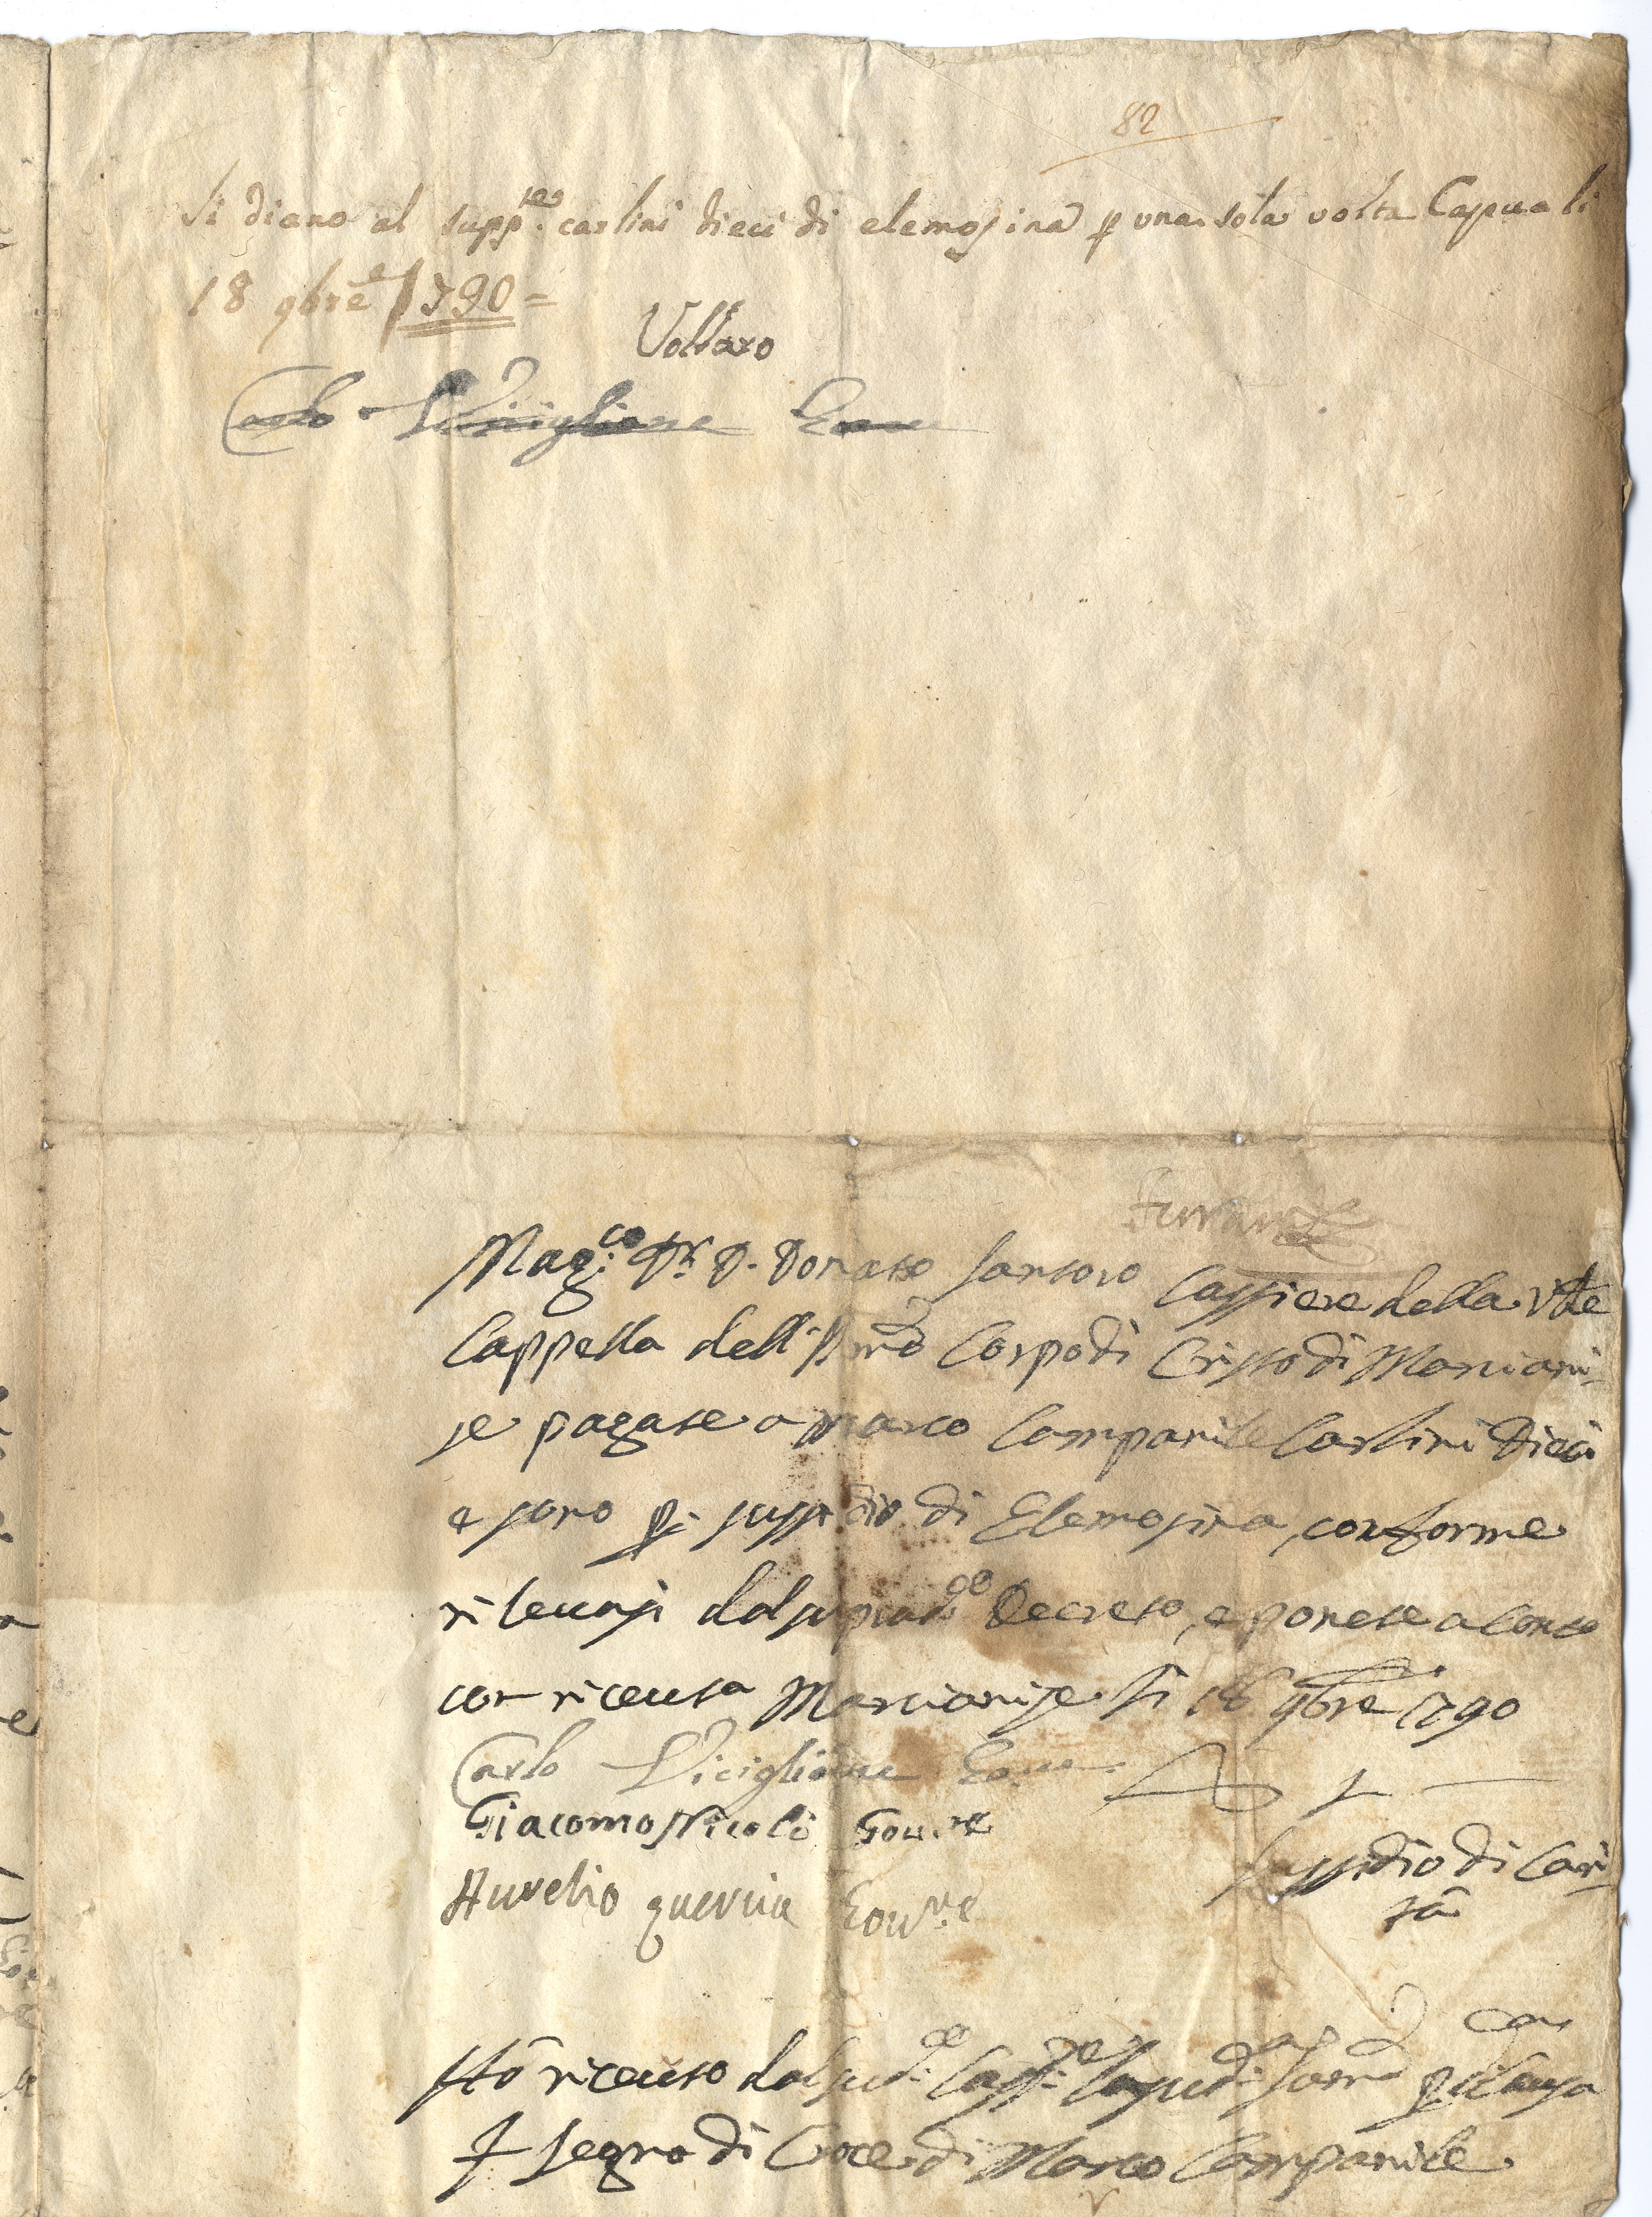 82
Si diano al supp.te carlini dieci di elemosina p una sola volta Capua li
18 9bre 1790 =
Vollaro
Carlo Viciglione Gov.re
Mag.co Dr. D. Donato Santoro Cassiere della Vble
Cappella dell SSmo Corpo di Cristo di Marciani-
se pagate a Marco Campanile Carlini Dieci
e sono p. sussidio di Elemosina, conforme
rilevasi dal suprad.to Decreto, e ponete a conto
con riceuta Marcianise li 18 9bre 1790
Carlo Viciglione Gov.re
Giacomo Nicolò Gov.re
Aurelio quercia Gov.re
Sussidio di Cari-
tà
Hò riceuto dal sud.o Cass.re la sud.a som.a p d.a causa
+ segno di Croce di Marco Campanile